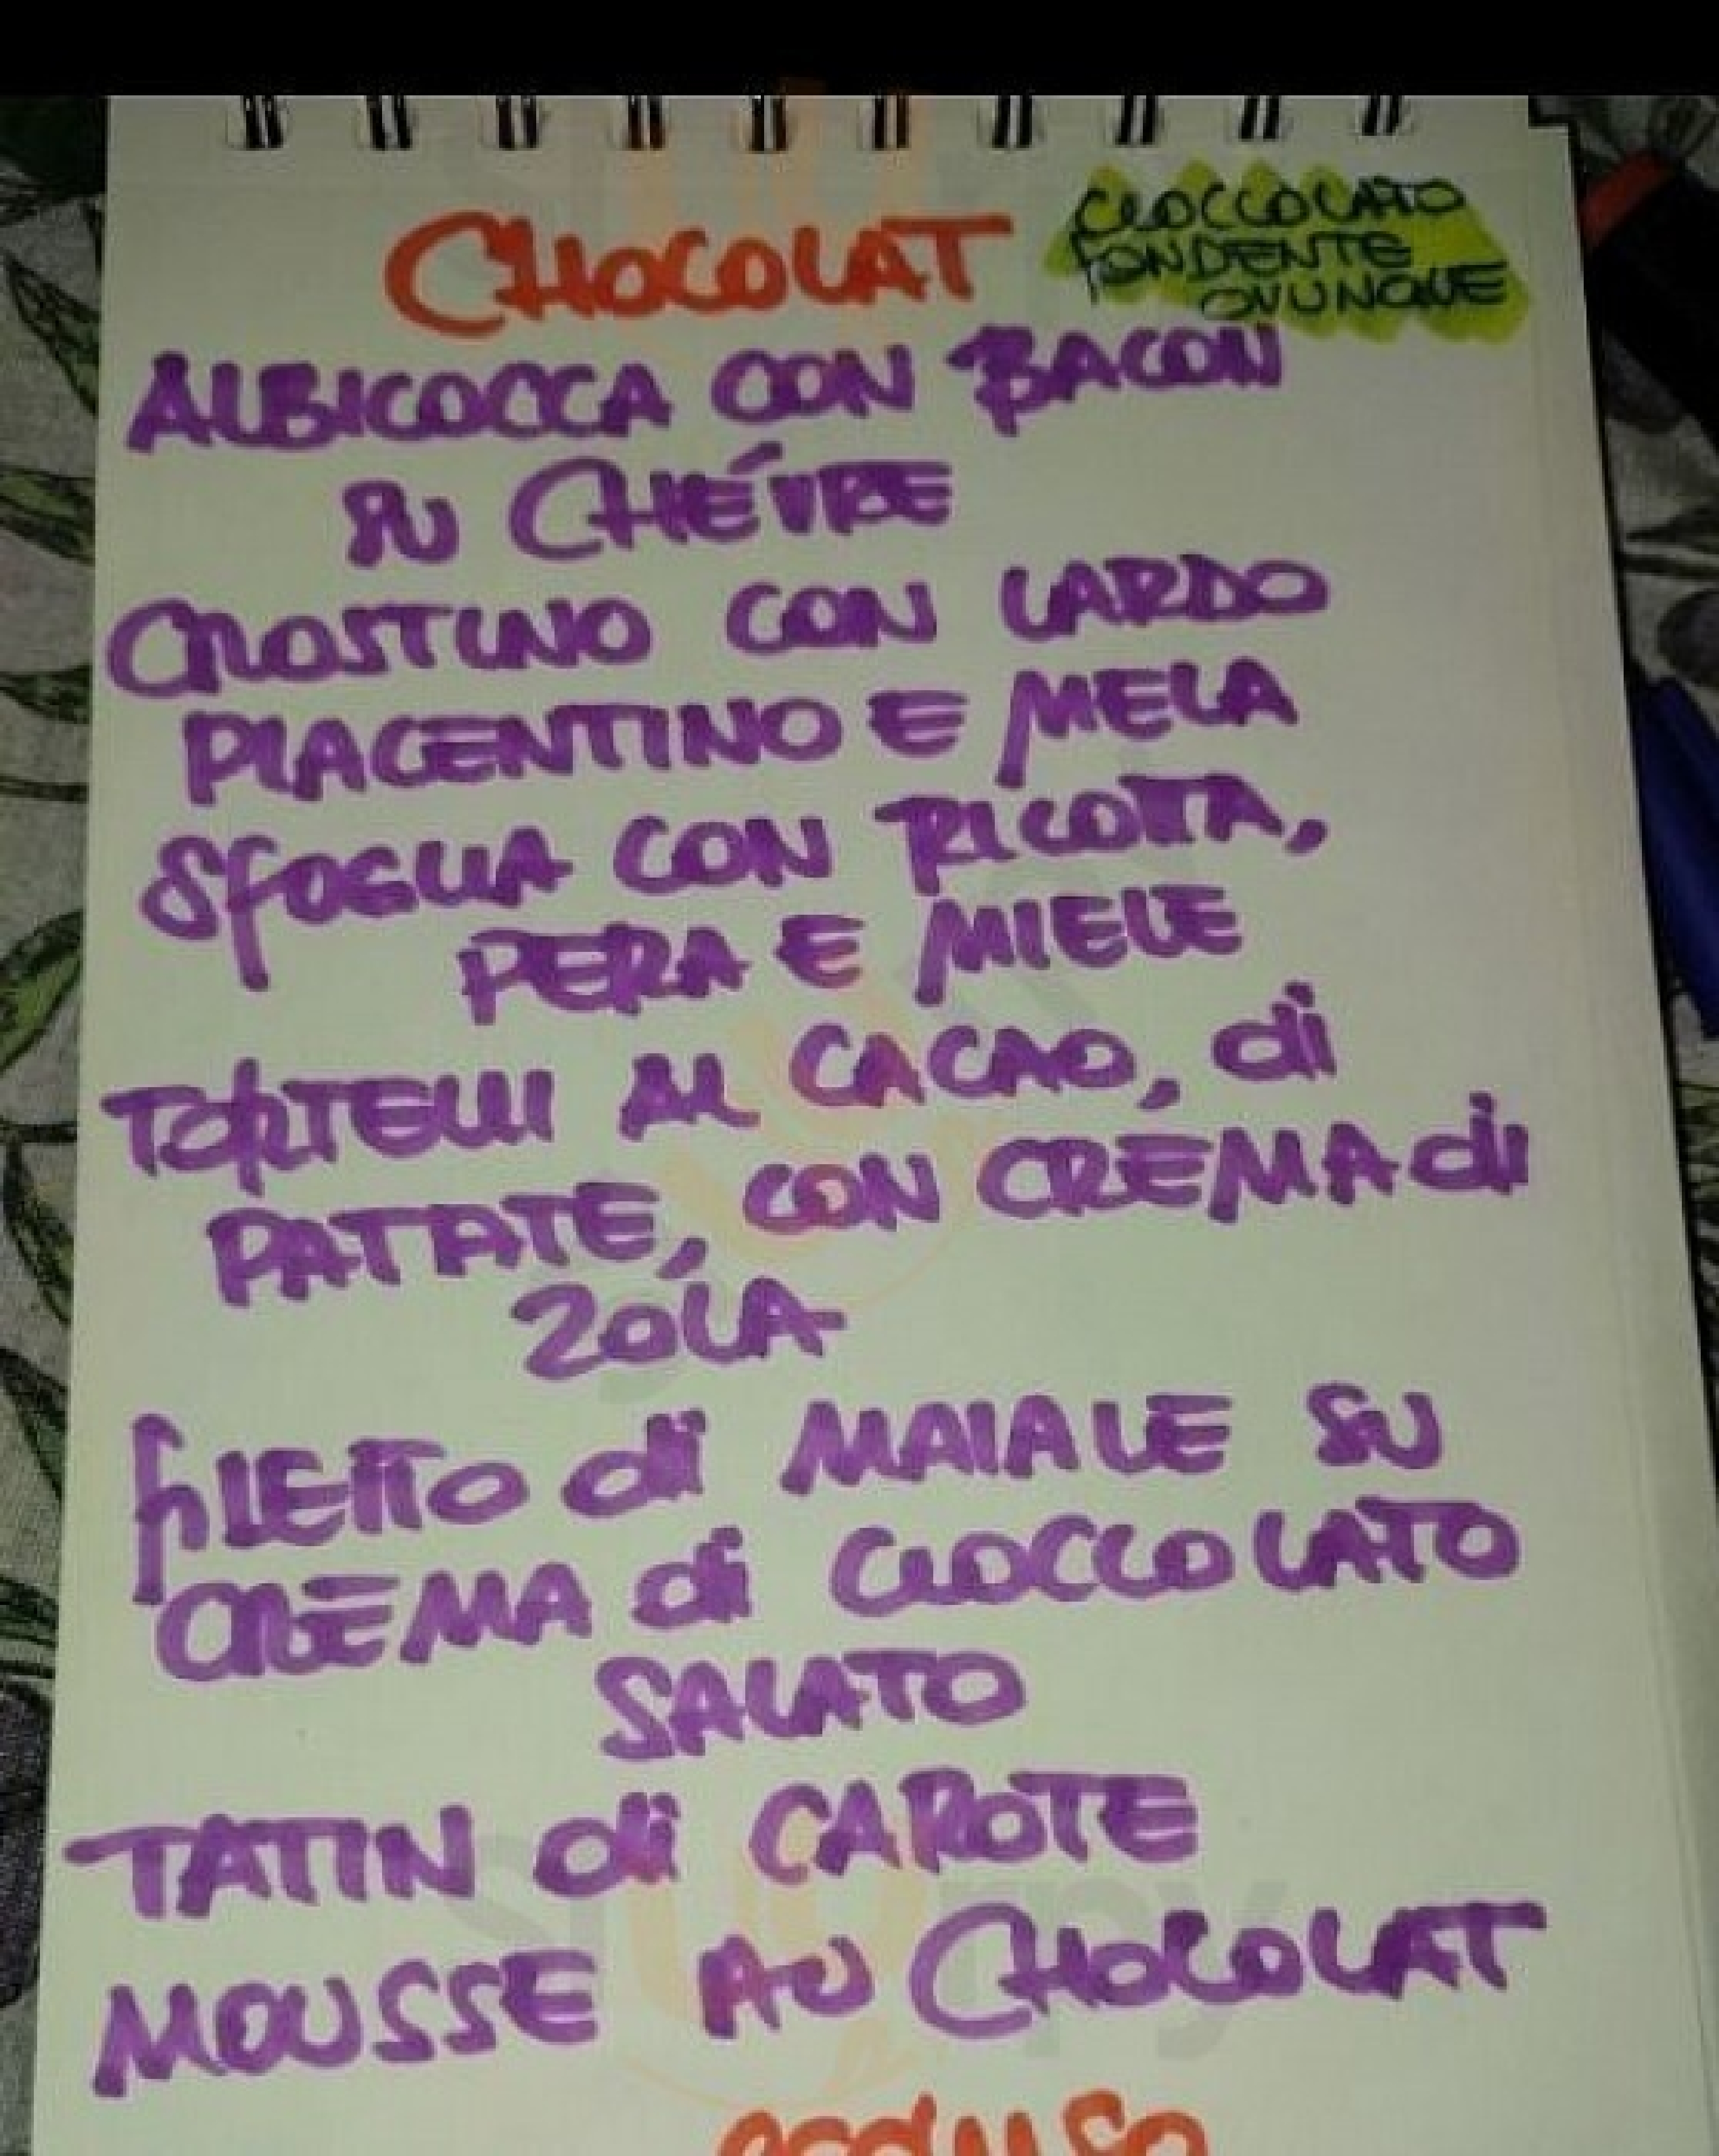 CHOCOLAT
CIOCCOLATO
FONDENTE
OVUNQUE
ALBICOCCA CON BACON
SU CHÉVRE
CROSTINO CON LARDO
PIACENTINO E MELA
SFOGLIA CON RICOTTA,
PERA E MIELE
TORTELLI AL CACAO, di
PATATE, CON CREMA di
ZOLA
FILETTO di MAIALE SU
CREMA di CIOCCOLATO
SALATO
TATIN di CAROTE
MOUSSE AU CHOCOLAT